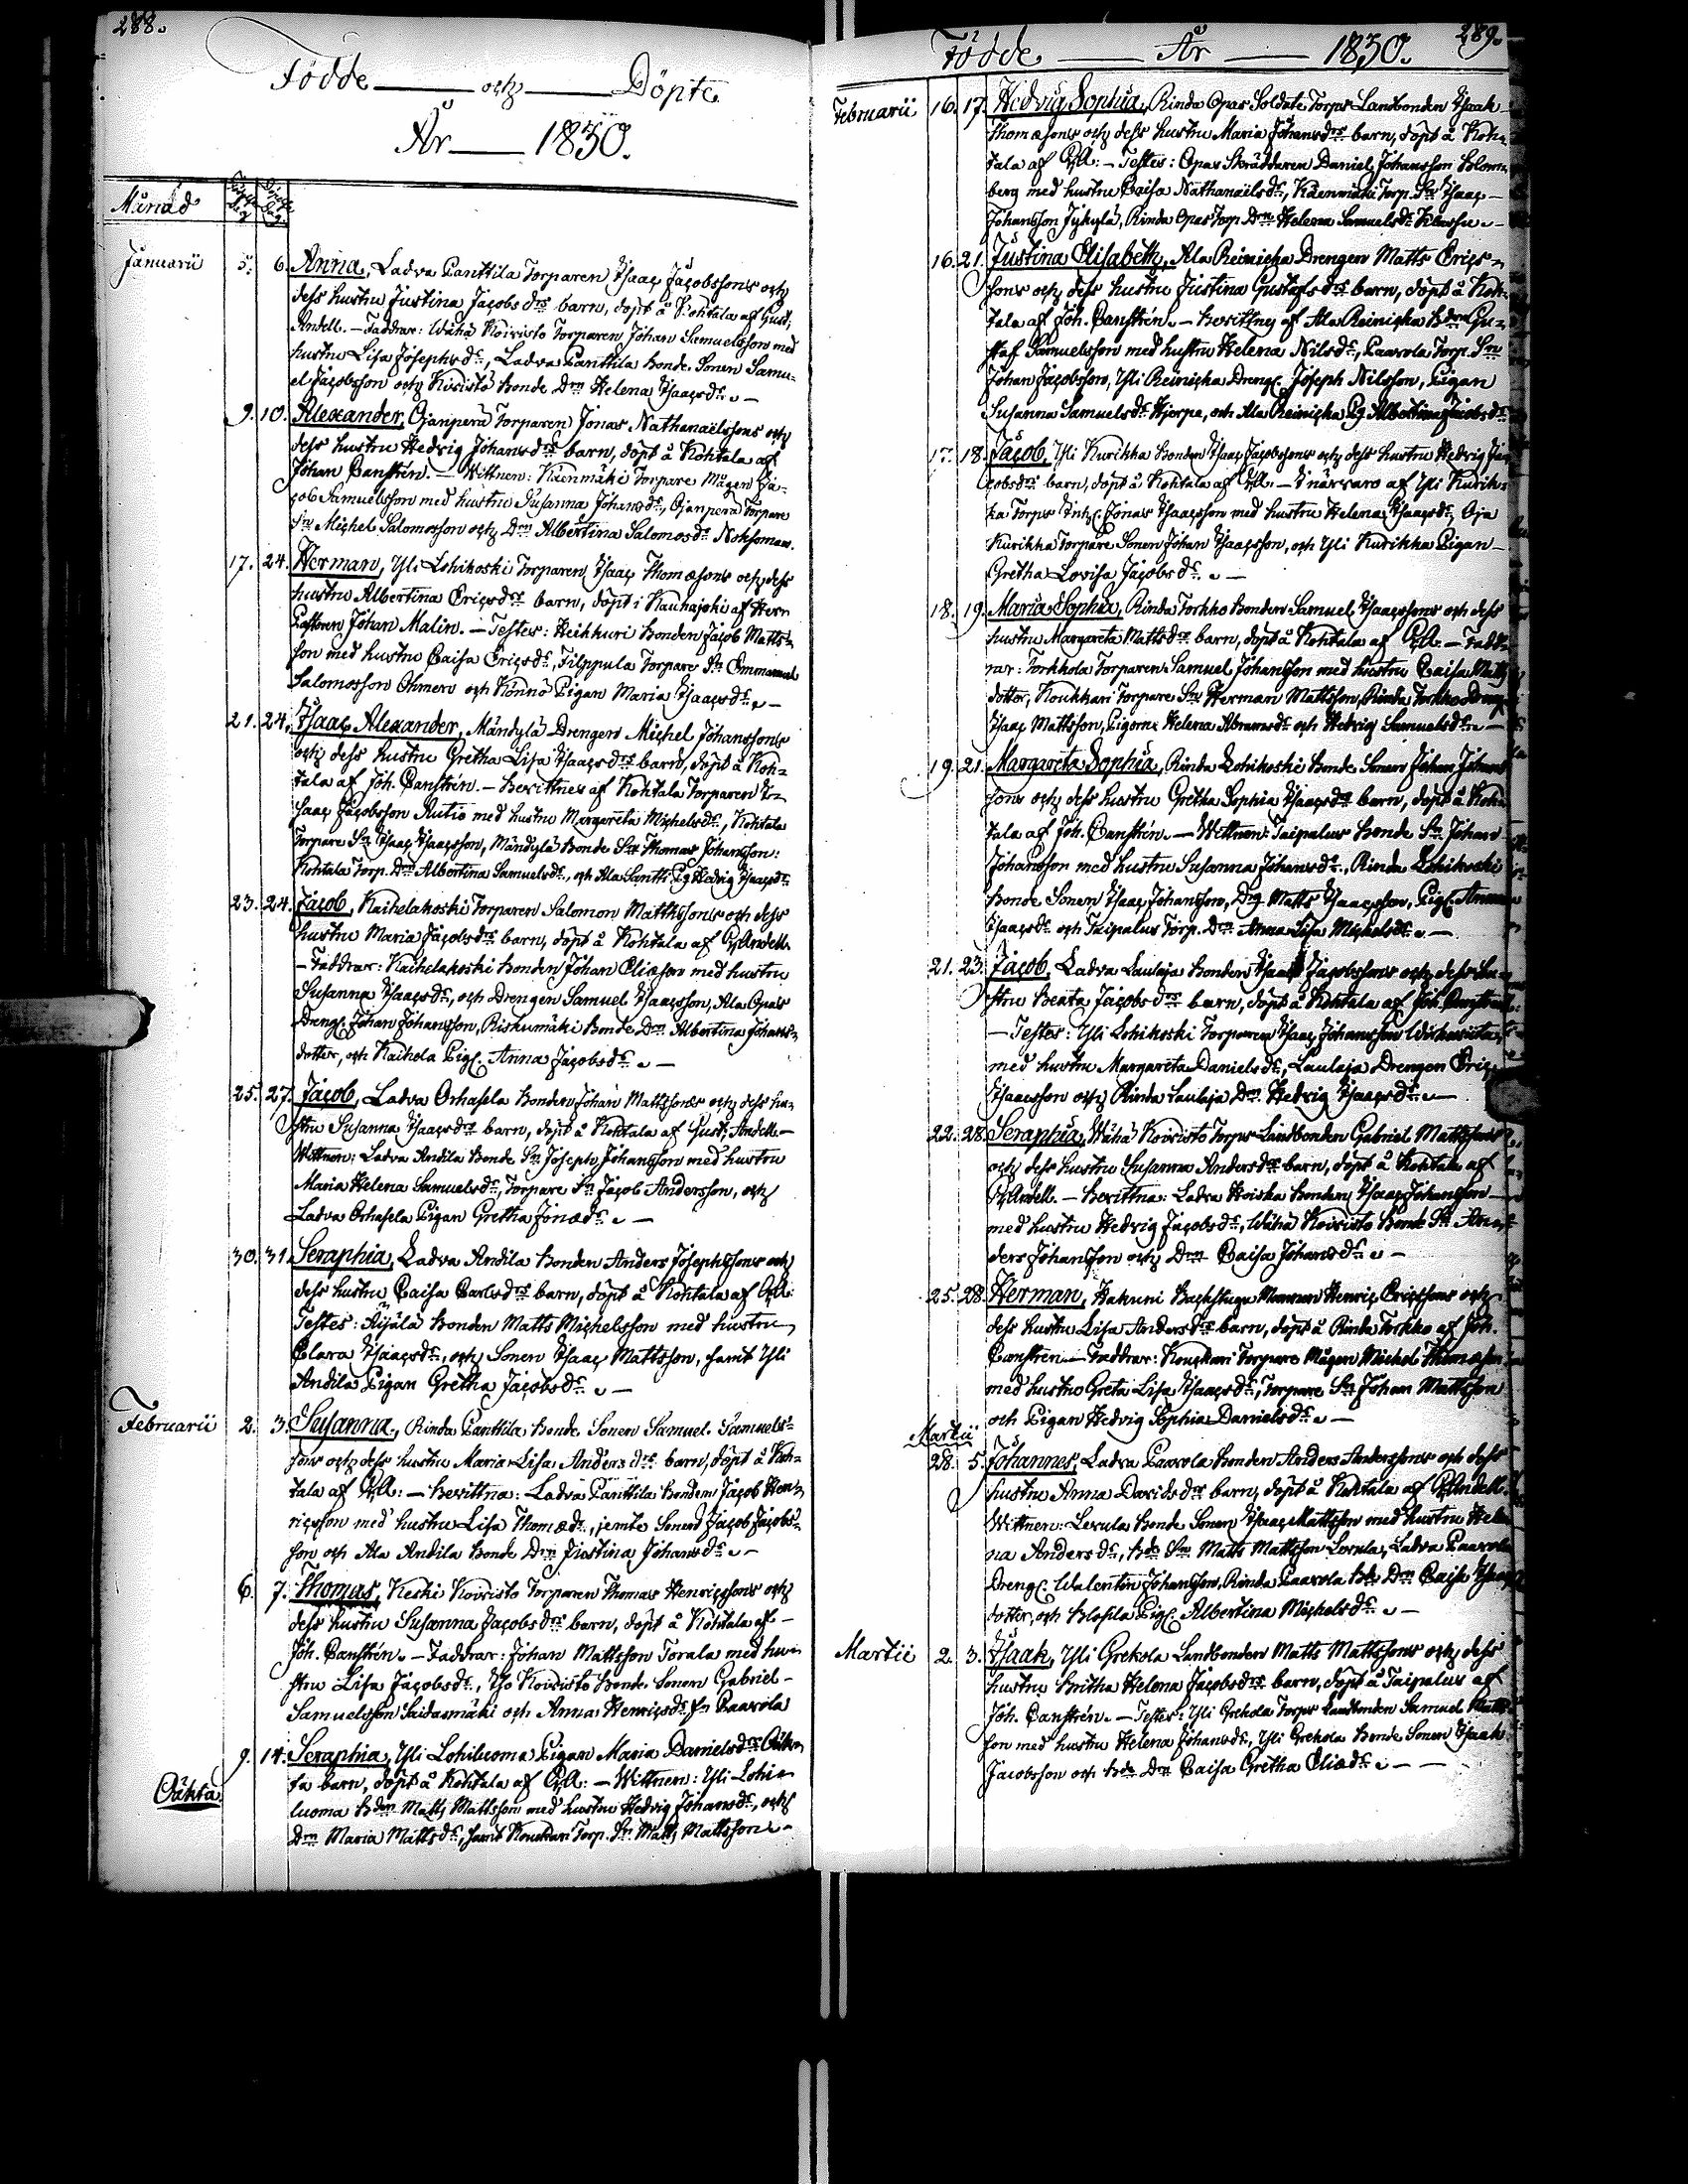 288.
Födde och Döpte
År 1830.
Månad Födelse Dag Döpelse Dag
Januarii 5. 6. Anna, Ladva Panttila Torparen Isaac Jacobssons och
dess hustru Justina Jacobs drs barn, döpt å Kohtala af Gust,
Andell. - Faddrar: Wähä Koivisto Torparen Johan Samuelsson med
hustru Lisa Josephs dr, Ladva Panttila Bonde Sonen Samu-
el Jacobsson och Koivisto Bonde Drn Helena Isaacs dr. -
9. 10. Alexander, Ojanperä Torparen Jonas Nathanaëlssons och
dess hustru Hedvig Johans drs barn, döpt å Kohtala af
Johan Canstrén. - Wittnen: Käenmäki Torpare Mågen Ja-
cob Samuelsson med hustru Susanna Johans dr, Ojanperä Torpare
Sn Michel Salomosson och Drn Albertina Salomos dr
17. 24. Herman, Yli Lohikoski Torparen Isaac Thomæsons och dess
hustru Albertina Ericsdrs barn, döpt i Kauhajoki af Herr
Pastoren Johan Malin. - Testes: Heikkuri Bonden Jacob Matts-
son med hustru Caisa Ericsdr, Filppula Torpare Sn Emmanuel
Salomosson Öhmen och Könnö Pigan Maria Isaacsdr. -
21. 24. Isaac Alexander, Mändylä Drengen Michel Johanssons
och dess hustru Gretha Lisa Isaacs drs barn, döpt å Koh-
tala af Joh. Canstrén. - Bevittnes af Kohtala Torparen I-
saac Jacobsson Rutio med hustru Margareta Michelsdr, Kohtala
Torpare Sn Isaac Isaacsson, Mändylä Bonde Sn Thomas Johansson:
Kohtala Torp. Drn Albertina Samuelsdr, och Ala Pantti. Pig Hedvig Isaacsdr
23. 24. Jacob, Kaihelakoski Torparen Salomon Matthssons och dess
hustru Maria Jacobsdrs barn, döpt å Kohtala af G, Andell.
- Faddrar: Kaihelakoski Bonden Johan Eliæson med hustru
Susanna Isaacsdr, och Drengen Samuel Isaacsson, Ala Opas
Dreng. Johan Johansson, Riskumäki Bonde Drn Albertina Johans-
dotter, och Kaihola Pig. Anna Jacobsdr. -
25. 27. Jacob, Ladva Orhasela Bonden Johan Mattssons och dess hu-
stru Susanna Isaacsdrs barn, döpt å Kohtala af Gust, Andell. -
Wittnen: Ladva Andila Bonde Sn Joseph Johansson med hustru
Maria Helena Samuelsdr, Torpare Sn Jacob Andersson, och
Ladva Orhasela Pigan Gretha Jonædr. -
30. 31. Seraphia, Ladva Andila Bonden Anders Josephssons och
dess hustru Caisa Carlsdrs barn, döpt å Kohtala af G,A:
Testes: Äijälä Bonden Matts Michelsson med hustru
Clara Isaacsdr, och Sonen Isaac Mattsson, samt Yli
Andila Pigan Gretha Jacobsdr. -
Februarii 2. 3. Susanna, Rinda Panttila Bonde Sonen Samuel Samuels-
sons och dess hustru Maria Lisa Anders drs barn, döpt å Koh-
tala af G,A: - Bevittna: Ladva Panttila Bonden Jacob Hen-
ricsson med hustru Lisa Thomædr, jemte Sonen Jacob Jacobs-
son och Ala Andila Bonde Drn Justina Johansdr. -
6. 7. Thomas, Keski Koivisto Torparen Thomas Henricssons och
dess hustru Susanna Jacobs drs barn, döpt å Kohtala af
Joh. Canstrén. - Faddrar: Johan Mattsson Torala med hu-
stru Lisa Jacobsdr, Iso Koivisto Bonde Sonen Gabriel
Samuelsson Saidasmäki och Anna Henricsdr fr. Paavola
9. 14. Seraphia, Yli Lohiluoma Pigan Maria Danielsdrs Oäk-
Oäkta ta barn, döpt å Kohtala af G,A: - Wittnen: Yli Lohi-
luoma Bden Matts Mattsson med hustru Hedvig Johansdr, och
Drn Maria Mattsdr, samt Koukkari Torp. Sn Matts Mattsson. -
Födde År 1830. 289.
Februarii 16. 17. Hedvig Sophia, Rinda Opas Soldate Torps Landbonden Isaak
Thomæsons och dess hustru Maria Johansdrs barn, döpt å Koh-
tala af G,A: - Testes: Opas Skräddaren Daniel Johansson Blom-
berg med hustru Caisa Nathanaëlsdr, Käenmäki Torp. Sn Isaac
Johansson Jykylä, Rinda Opas Torp. Drn Helena Samuelsdr
16. 21. Justina Elisabeth, Ala Reinicka Drengen Matts Erics-
sons och dess hustru Justina Gustafs drs barn, döpt å Koh-
tala af Joh. Canstrén. - Bevittnes af Ala Reinicka Bden Gu-
staf Samuelsson med hustru Helena Nilsdr, Paavola Torp. Sn
Johan Jacobsson, Yli Reinicka Dreng. Joseph Nilsson, Pigan
Susanna Samuelsdr Hjerpe, och Ala Reinicka Pig Albertina Jacobsdr
17. 18. Jacob, Yli Kurikka Bonden Isaac Jacobssons och dess hustru Hedvig Ja-
cobsdrs barn, döpt å Kohtala af G,A. - I närvaro af Yli Kurik-
ka Torps Inh. Jonas Isaacsson med hustru Helena Isaacsdr, Oja
Kurikka Torpare Sonen Johan Isaacsson, och Yli Kurikka Pigan
Gretha Lovisa Jacobsdr. -
18. 19. Maria Sophia, Rinda Torkko Bonden Samuel Isaacssons och dess
hustru Margareta Mattsdrs barn, döpt å Kohtala af G,A. - Fadd-
rar: Torkkola Torparen Samuel Johansson med hustru Caisa Matts
dotter, Koukkari Torpare Sn Herman Mattsson, Rinda Torkko Dreng
Isaac Mattsson, Pigorne Helena Abramsdr och Hedvig Samuelsdr. -
19. 21. Margareta Sophia, Rinda Lohikoski Bonde Sonen Johan Johans
sons och dess hustru Gretha Sophia Isaacsdrs barn, döpt å Koh-
tala af Joh. Canstrén. - Wittnen: Taipalus Bonde Sn Johan
Johansson med hustru Susanna Johansdr, Rinda Lohikoski
Bonde Sonen Isaac Johansson, Dreg Matts Isaacsson, Pig. Anna
Isaacsdr och Taipalus Torp. Drn Anna Lisa Michelsdr. -
21. 23. Jacob, Ladva Laulaja Bonden Isaac Jacobssons och dess hu-
stru Beata Jacobsdrs barn, döpt å Kohtala af Joh. Canstrén:
- Testes: Yli Lohikoski Torparen Isaac Johansson
med hustru Margareta Danielsdr, Laulaja Drengen Eric
Isaacsson och Rinda Laulaja Drn Hedvig Isaacsdr. -
22. 28. Seraphia, Wähä Koivisto Torps Landbonden Gabriel Mattssons
och dess hustru Susanna Andersdrs barn, döpt å Kohtala af
G, Andell. - Bevittna: Ladva Hoiska Bonden Isaac Johansson
med hustru Hedvig Jacobsdr, Wähä Koivisto Bonde Sn An-
ders Johansson och Drn Caisa Johansdr. -
25. 28. Herman, Hakuni Backstugu Mannen Henric Ericssons och
dess hustru Lisa Andersdrs barn, döpt å Rinda Torkko af Joh.
Canstren. - Faddrar: Kouckari Torpare Mågen Michel Thomæson
med hustru Greta Lisa Isaacsdr, Torpare Sn Johan Mattsson
och Pigan Hedvig Sophia Danielsdr. -
Martii
28. 5. Johannes, Ladva Paavola Bonden Anders Anderssons och dess
hustru Anna Davidsdrs barn, döpt å Kohtala af G, Andell.
Wittnen: Levula Bonde Sonen Isaac Mattsson med hustru Hele
na Andersdr, Bde Sn Matts Mattsson Levula, Ladva Paavola
Dreng. Walentin Johansson, Rinda Paavola Bde Drn Caisa Isaacs
dotter, och Pig. Albertina Michelsdr. -
Martii 2. 3. Isaak, Yli Grekola Landbonden Matts Mattssons och dess
hustru Britha Helena Jacobsdrs barn, döpt å Taipalus af
Joh. Canstrén. - Testes: Yli Grekola Torps Landbonden Samuel Matts
son med hustru Helena Johansdr, Yli Grekola Bonde Sonen Isaak
Jacobsson och Bde Drn Caisa Gretha Eliædr. -